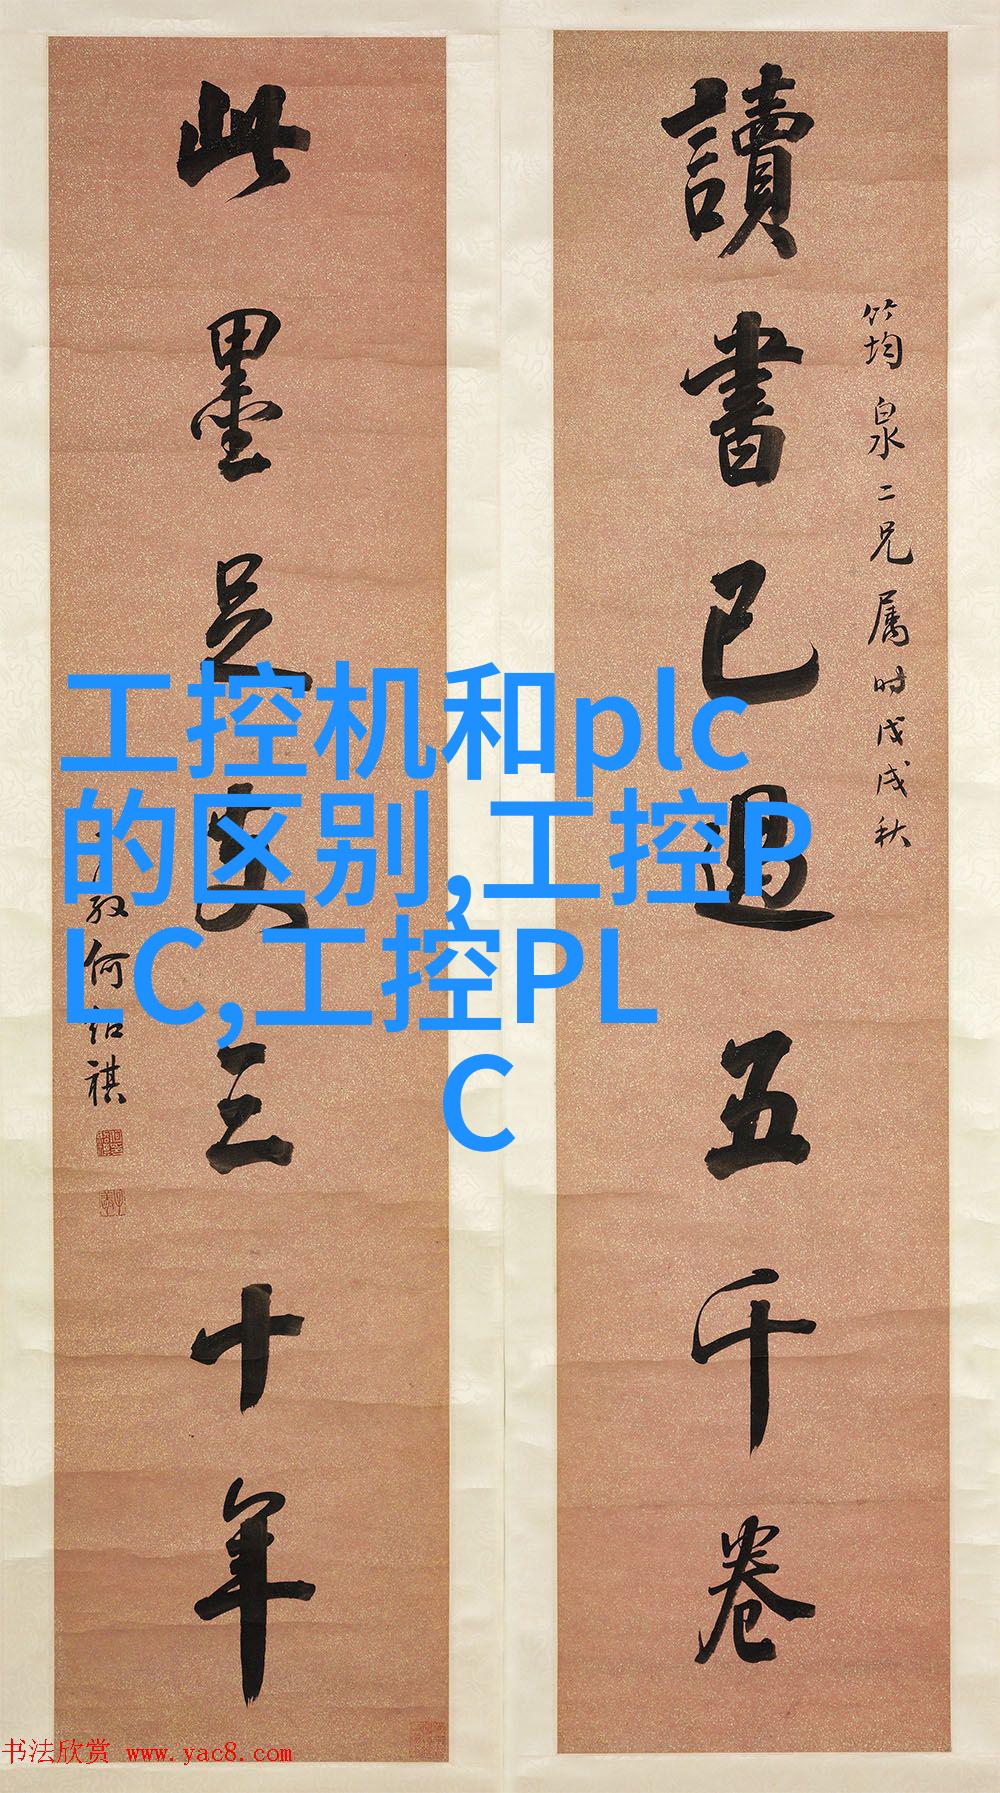 讀書已過五千卷
竹均泉二兄属時戊戌秋
此墨足支三十年
教何绍祺
工控机和plc
的区别,工控P
LC,工控PL
C
书法欣赏 www.yac8.com